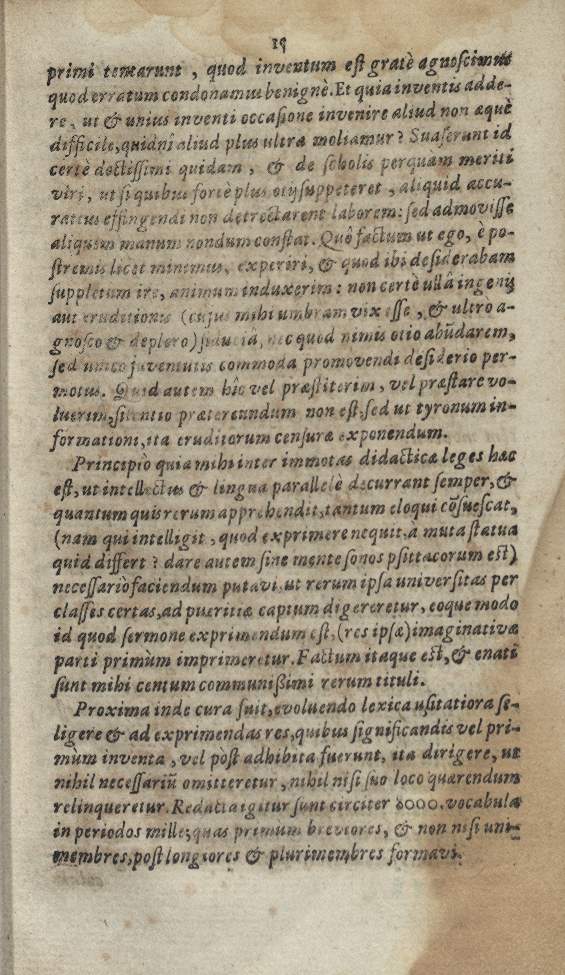 15
primi temtarunt, quod inventum est gratè agnoscimus
quod erratum condonamus benignè. Et quia inventis adde-
re, ut & unius inventi occasione invenire aliud non æquè
difficile, quidni aliud plus ultra moliamur? Suaserunt id
certè doctissimi quidam, & de scholis perquàm meriti
viri, ut si quibus fortè plus otij suppeteret, aliquid accu-
ratius effingendi non detrectarent laborem: sed admovisse
aliquem manum nondum constat. Quô factum ut ego, è po-
stremis licet minimus, experiri, & quod ibi desiderabam
suppletum ire, animum induxerim: non certè ullâ ingenij
aut eruditionis (cujus mihi umbram vix esse, & ultrò a-
gnosco & deploro) fiduciâ, nec quod nimis otio abūdarem,
sed unico juventutis commoda promovendi desiderio per-
motus. Quid autem hîc vel præstiterim, vel præstare vo-
luerim, silentio prætereundum non est, sed ut tyronum in-
formationi, ita eruditorum censuræ exponendum.
Principiò quia mihi inter immotas didacticæ leges hæc
est, ut intellectus & lingua parallelè decurrant semper, &
quantum quis rerum apprehendit, tantum eloqui cōsuescat,
(nam qui intelligit, quod exprimere nequit, a muta statua
quid differt? dare autem sine mente sonos psittacorum est)
necessariò faciendum putavi, ut rerum ipsa universitas per
classes certas, ad pueritiæ captum digereretur, eoque modo
id quod sermone exprimendum est, (res ipsæ) imaginativæ
parti primùm imprimeretur. Factum itaque est, & enati
sunt mihi centum communissimi rerum tituli.
Proxima inde cura fuit, evolvendo lexica usitatiora se-
ligere & ad exprimendas res, quibus significandis vel pri-
mùm inventa, vel pòst adhibita fuerunt, ita dirigere, ut
nihil necessariū omitteretur, nihil nisi suo loco quærendum
relinqueretur. Redacta igitur sunt circiter 8000. vocabula
in periodos mille; quas primum breviores, & non nisi uni-
membres, post longiores & plurimembres formavi.